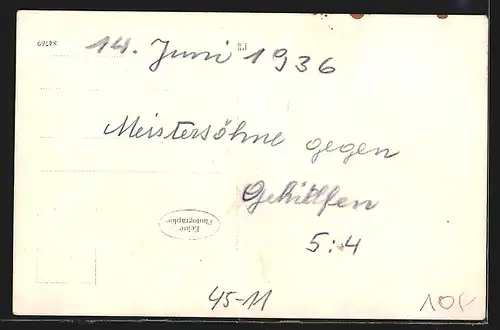 14. Juni 1936
84769
Meistersöhne gegen
Gehilfen
5:4
Echte
Photographie
45-11
10.-